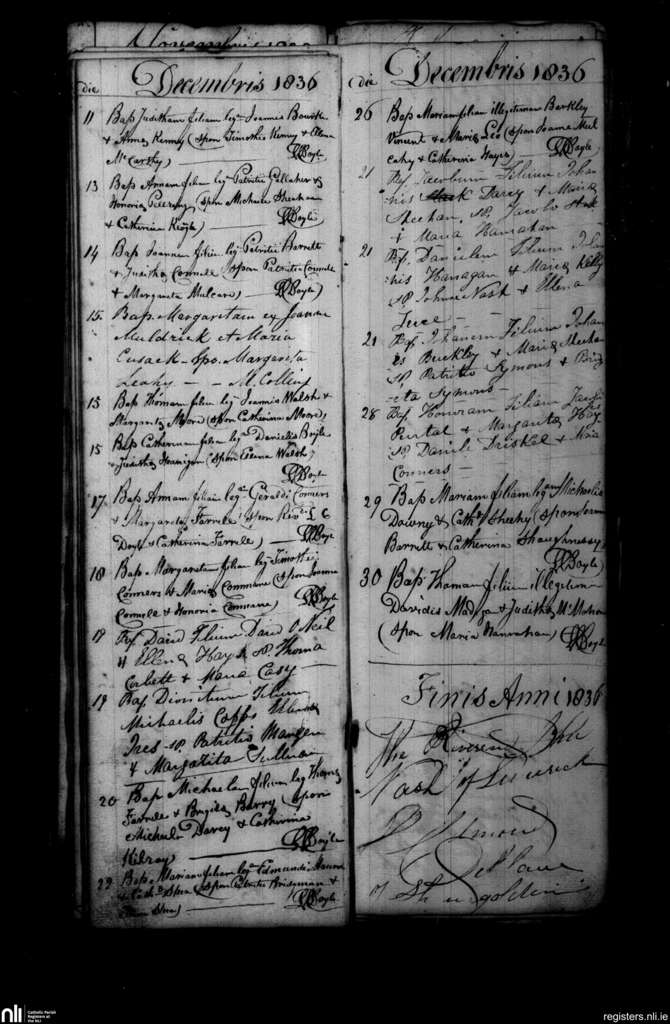 Decembris 1836
die
11 Bap Juditham filiam leg Joannis Bourke
& Anna Kenny (Spon Timotheo Kenny & Elena
McCarthy) Boyle
13 Bap Annam filiam leg Patritii Gallaher &
Honoria (Spon Michaele Sheehan
& Catherina Keogh) Boyle
14 Bap Joannem filium leg Patritii Barrett
& Juditha Connele (Spon Patritio Connele
& Margareta Mulcare) Boyle
15. Bap. Margaretam ex Joanne
Muldrick et Maria
Cusack - Spo. Margareta
Leahy - - M. Collins
15 Bap Thomam filium leg Joannis Walsh &
Margareta Moore (Spon Catherina Moore)
15 Bap Catherinam filiam leg Danielis Boyle
& Juditha (Spon Elena Walsh)
Boyle
17. Bap Annam filiam leg Geraldi Conners
& Margareta Farrele (Spon Revd L C
Doyle & Catherina Farrele) Boyle
18 Bap. Margaretam filiam leg Timothei
Conners & Maria Connane (Spon Joanne
Connele & Honoria Connane) Boyle
19 David Filium David O Neil
& Ellena Hays Sp Thoma
Corbett & Maria Casy
19 Bap Dionitium Filium
Michaelis Copps Ellena
Ives sp. Patritio
& Margarita Sullivan
20 Bap Michaelem filium leg Thoma
Farrele & Brigida Barry (Spon
Michaele Darcy & Catherina
Kilroy) Boyle
22 Bap Mariam filiam leg Edmundi
& Cath Shea (Spon Patritio Bridgman &
Shea) Boyle
Decembris 1836
die
26 Bap Mariam filiam illegitimam Barkley
Vincent & Maria Lee (Spon Joanne Mul
cahy & Catherina Hayes) Boyle
21 Jacobum Filium Johan
nis Darcy & Maria
Sheehan. sp. Jacobo
& Maria Hanrahan
21 Danielem Filium Johan
nis Hanagan & Maria Kelly
sp Johnne Nash & Ellena
Luce - -
21 Johanem Filium Johan
es Buckley & Maria Sheehan
sp Patritio Symons & Brig
eta Symons -
28 Honoram Filiam
& Margarita Hays
sp Daniele Driskel & Maria
Conners -
29 Bap Mariam filiam legam Michaelis
Downy & Cath Sheehy (Spon Joanne
Barrett & Catherina Shaughnessy
Boyle)
30 Bap Thomam filium illegitimum
Davidis & Juditha McMahon
(Spon Maria Hanrahan) Boyle
Finis Anni 1836
The Reverend
Nash of Limerick
of
nli
Catholic Parish
Registers at
the NLI
registers.nli.ie